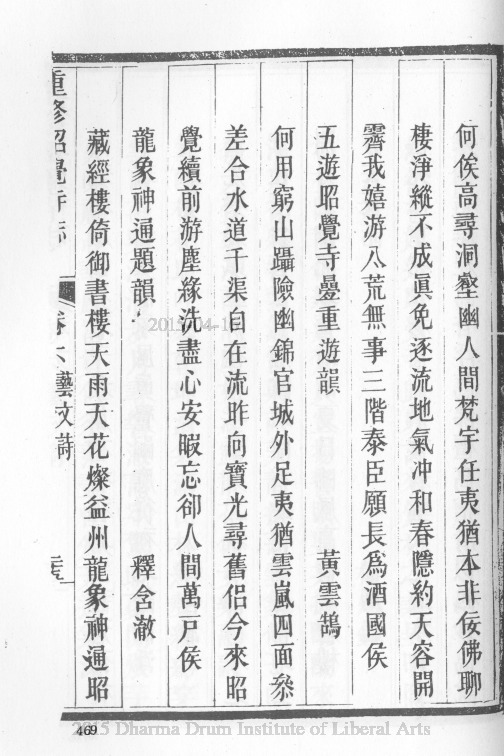 何俟高尋洞壑幽人間梵宇任夷猶本非佞佛聊
棲淨縱不成眞免逐流地氣冲和春隱約天容開
霽我嬉游八荒無事三階泰臣願長爲酒國侯
五遊昭覺寺疊重遊韻 黃雲鵠
何用窮山躡險幽錦官城外足夷猶雲嵐四面叅
差合水道千渠自在流昨向寶光尋舊侶今來昭
覺續前游塵緣洗盡心安暇忘卻人間萬戸侯
龍象神通題韻 釋含澈
藏經樓倚御書樓天雨天花燦益州龍象神通昭
重修昭覺寺志 卷六藝文詩
469
2015-04-1
2015 Dharma Drum Institute of Liberal Arts